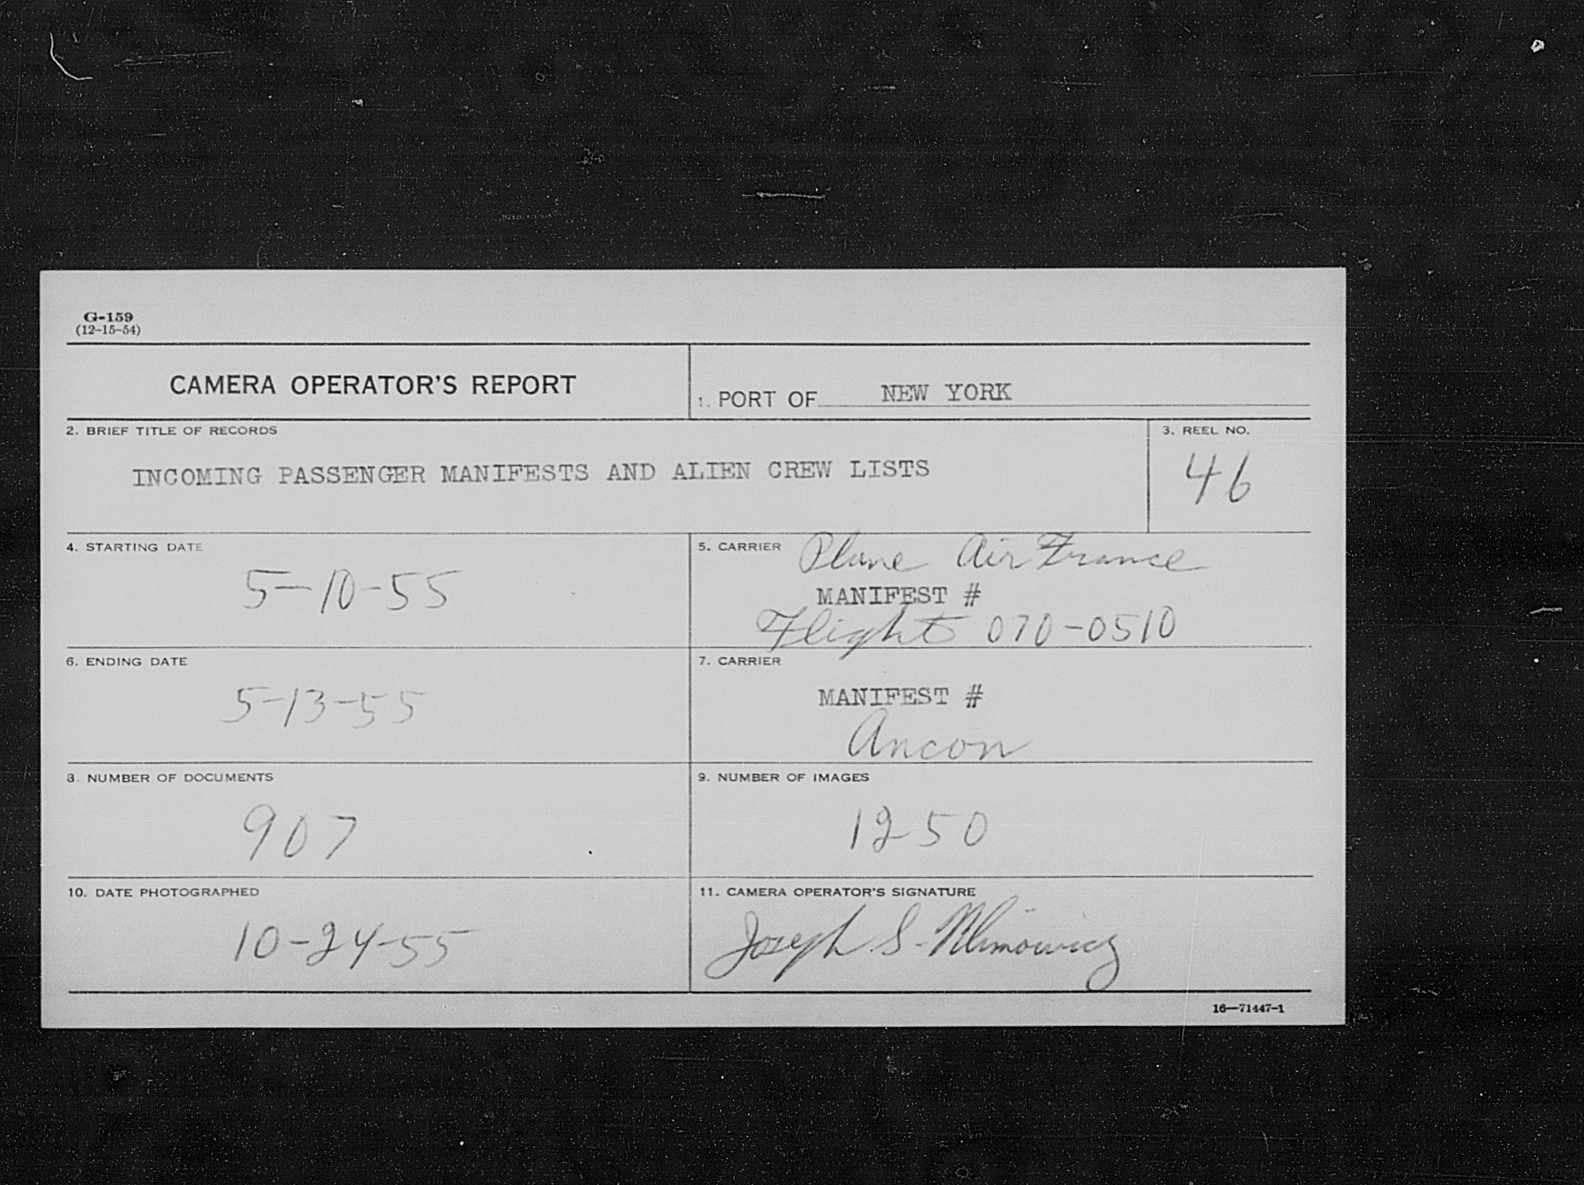 G-159
(12-15-54)
CAMERA OPERATOR'S REPORT
1. PORT OF NEW YORK
2. BRIEF TITLE OF RECORDS
INCOMING PASSENGER MANIFESTS AND ALIEN CREW LISTS
3. REEL NO.
46
4. STARTING DATE
5-10-55
5. CARRIER Plane Air France
MANIFEST #
Flight 070-0510
6. ENDING DATE
5-13-55
7. CARRIER
MANIFEST #
Ancon
8. NUMBER OF DOCUMENTS
907
9. NUMBER OF IMAGES
1250
10. DATE PHOTOGRAPHED
10-24-55
11. CAMERA OPERATOR'S SIGNATURE
Joseph S.
16-71447-1